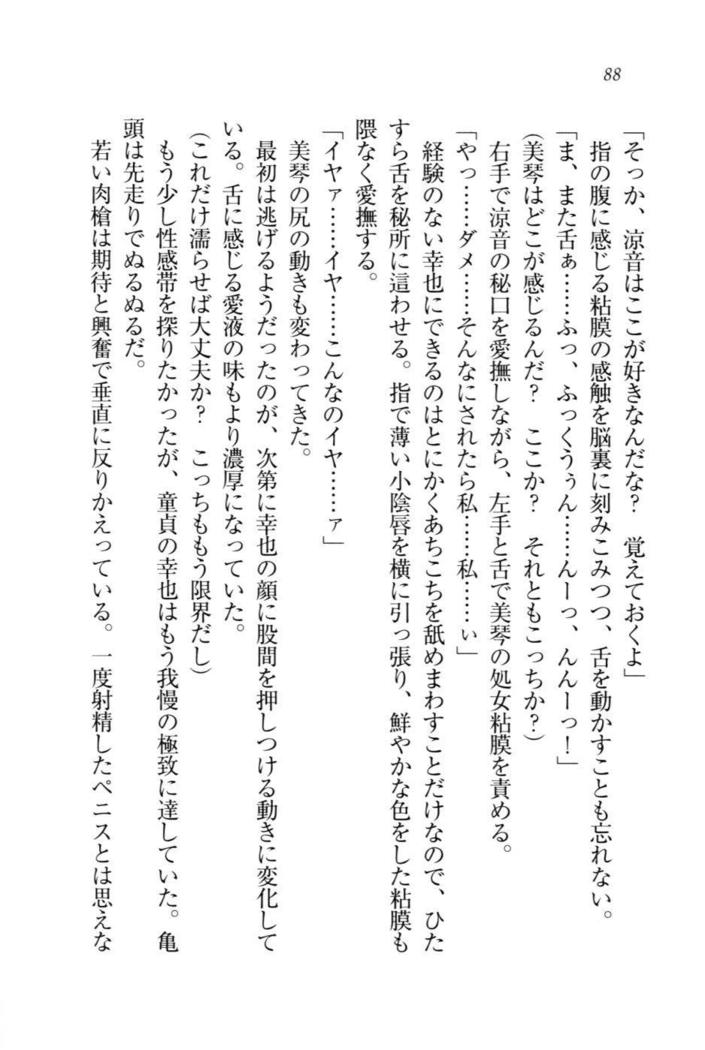 88
「そっか、涼音はここが好きなんだな?　覚えておくよ」
指の腹に感じる粘膜の感触を脳裏に刻みこみつつ、舌を動かすことも忘れない。
「ま、また舌ぁ……ふっ、ふっくうぅん……んーっ、んんーっ!」
(美琴はどこが感じるんだ?　ここか?　それともこっちか?)
右手で涼音の秘口を愛撫しながら、左手と舌で美琴の処女粘膜を責める。
「やっ……ダメ……そんなにされたら私……私……ぃ」
経験のない幸也にできるのはとにかくあちこちを舐めまわすことだけなので、ひた
すら舌を秘所に這わせる。指で薄い小陰唇を横に引っ張り、鮮やかな色をした粘膜も
隈なく愛撫する。
「イヤァ……イヤ……こんなのイヤ……ァ」
美琴の尻の動きも変わってきた。
最初は逃げるようだったのが、次第に幸也の顔に股間を押しつける動きに変化して
いる。舌に感じる愛液の味もより濃厚になっていた。
(これだけ濡らせば大丈夫か?　こっちももう限界だし)
もう少し性感帯を探りたかったが、童貞の幸也はもう我慢の極致に達していた。亀
頭は先走りでぬるぬるだ。
若い肉槍は期待と興奮で垂直に反りかえっている。一度射精したペニスとは思えな